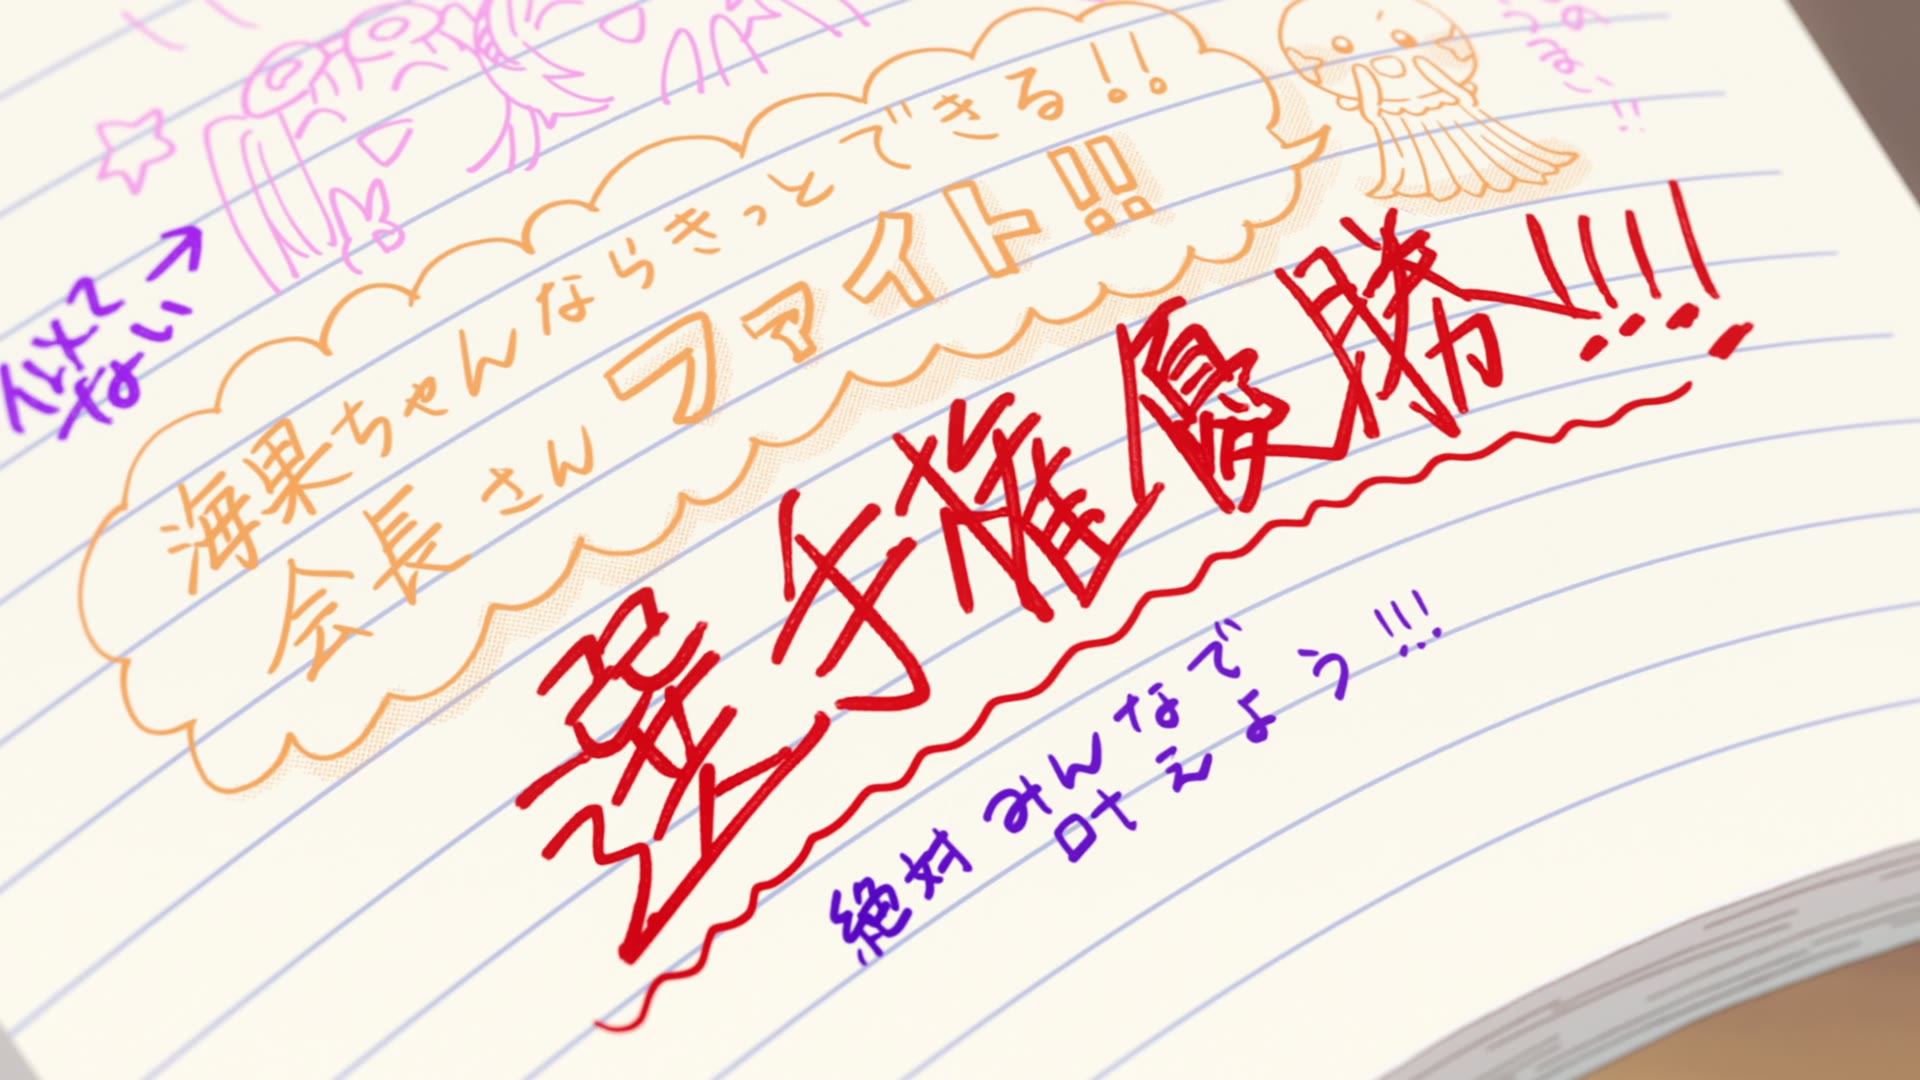 似てない
海果ちゃんならきっとできる!!
会長さんファイト!!
選手権優勝!!!!
絶対みんなで
叶えよう!!!